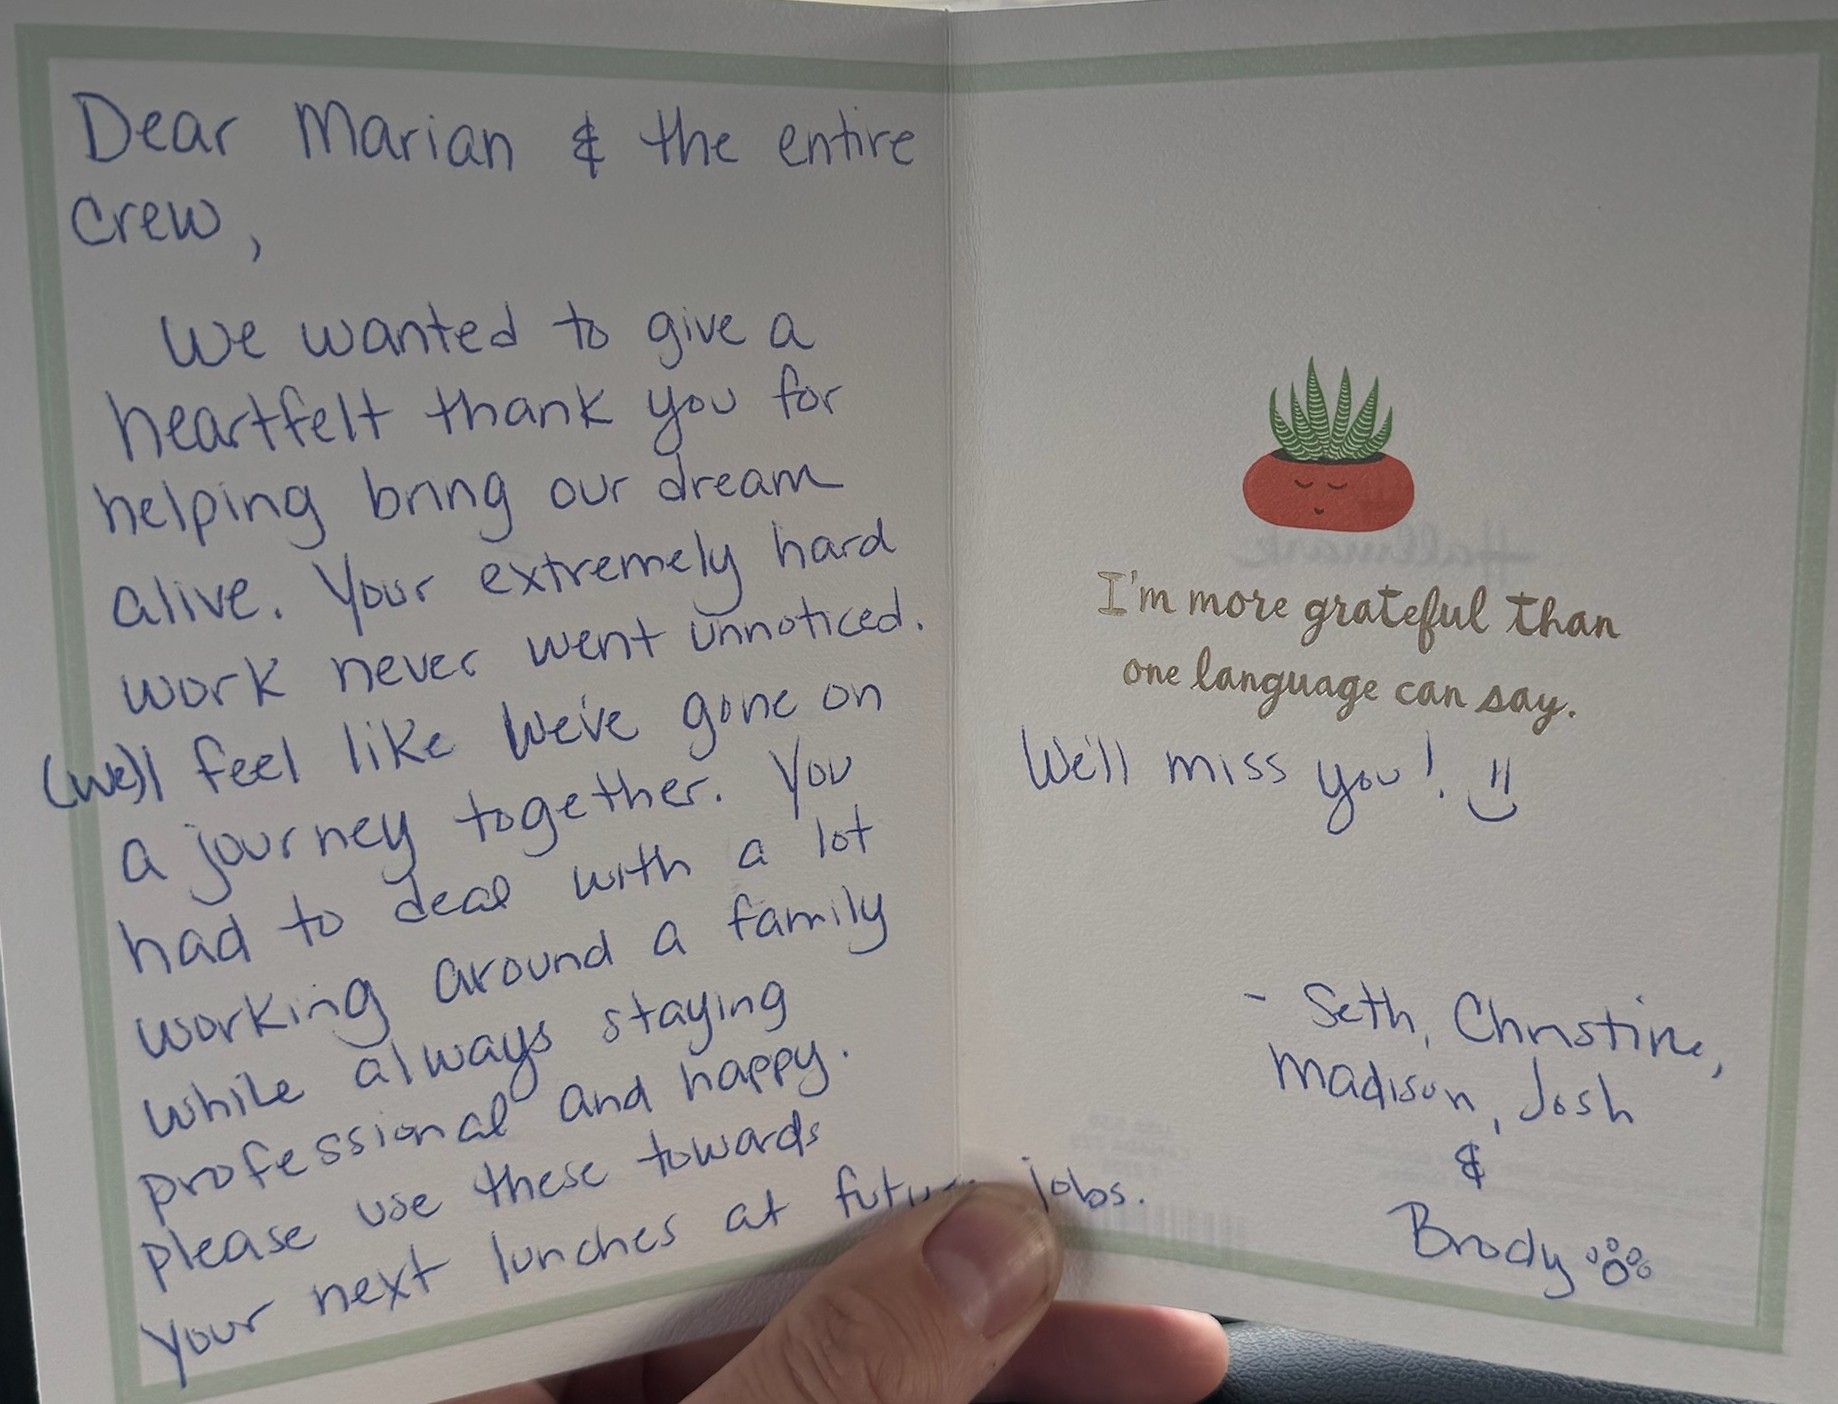 Dear Marian & the entire
Crew,
We wanted to give a
heartfelt thank you for
helping bring our dream
alive. Your extremely hard
work never went unnoticed.
(We)ll feel like We've gone on
a journey together. You
had to deal with a lot
working around a family
while always staying
professional and happy.
please use these towards
your next lunches at future jobs.
Hallmark
I'm more grateful than
one language can say.
We'll miss you!
- Seth, Christine,
Madison, Josh
&
Brody